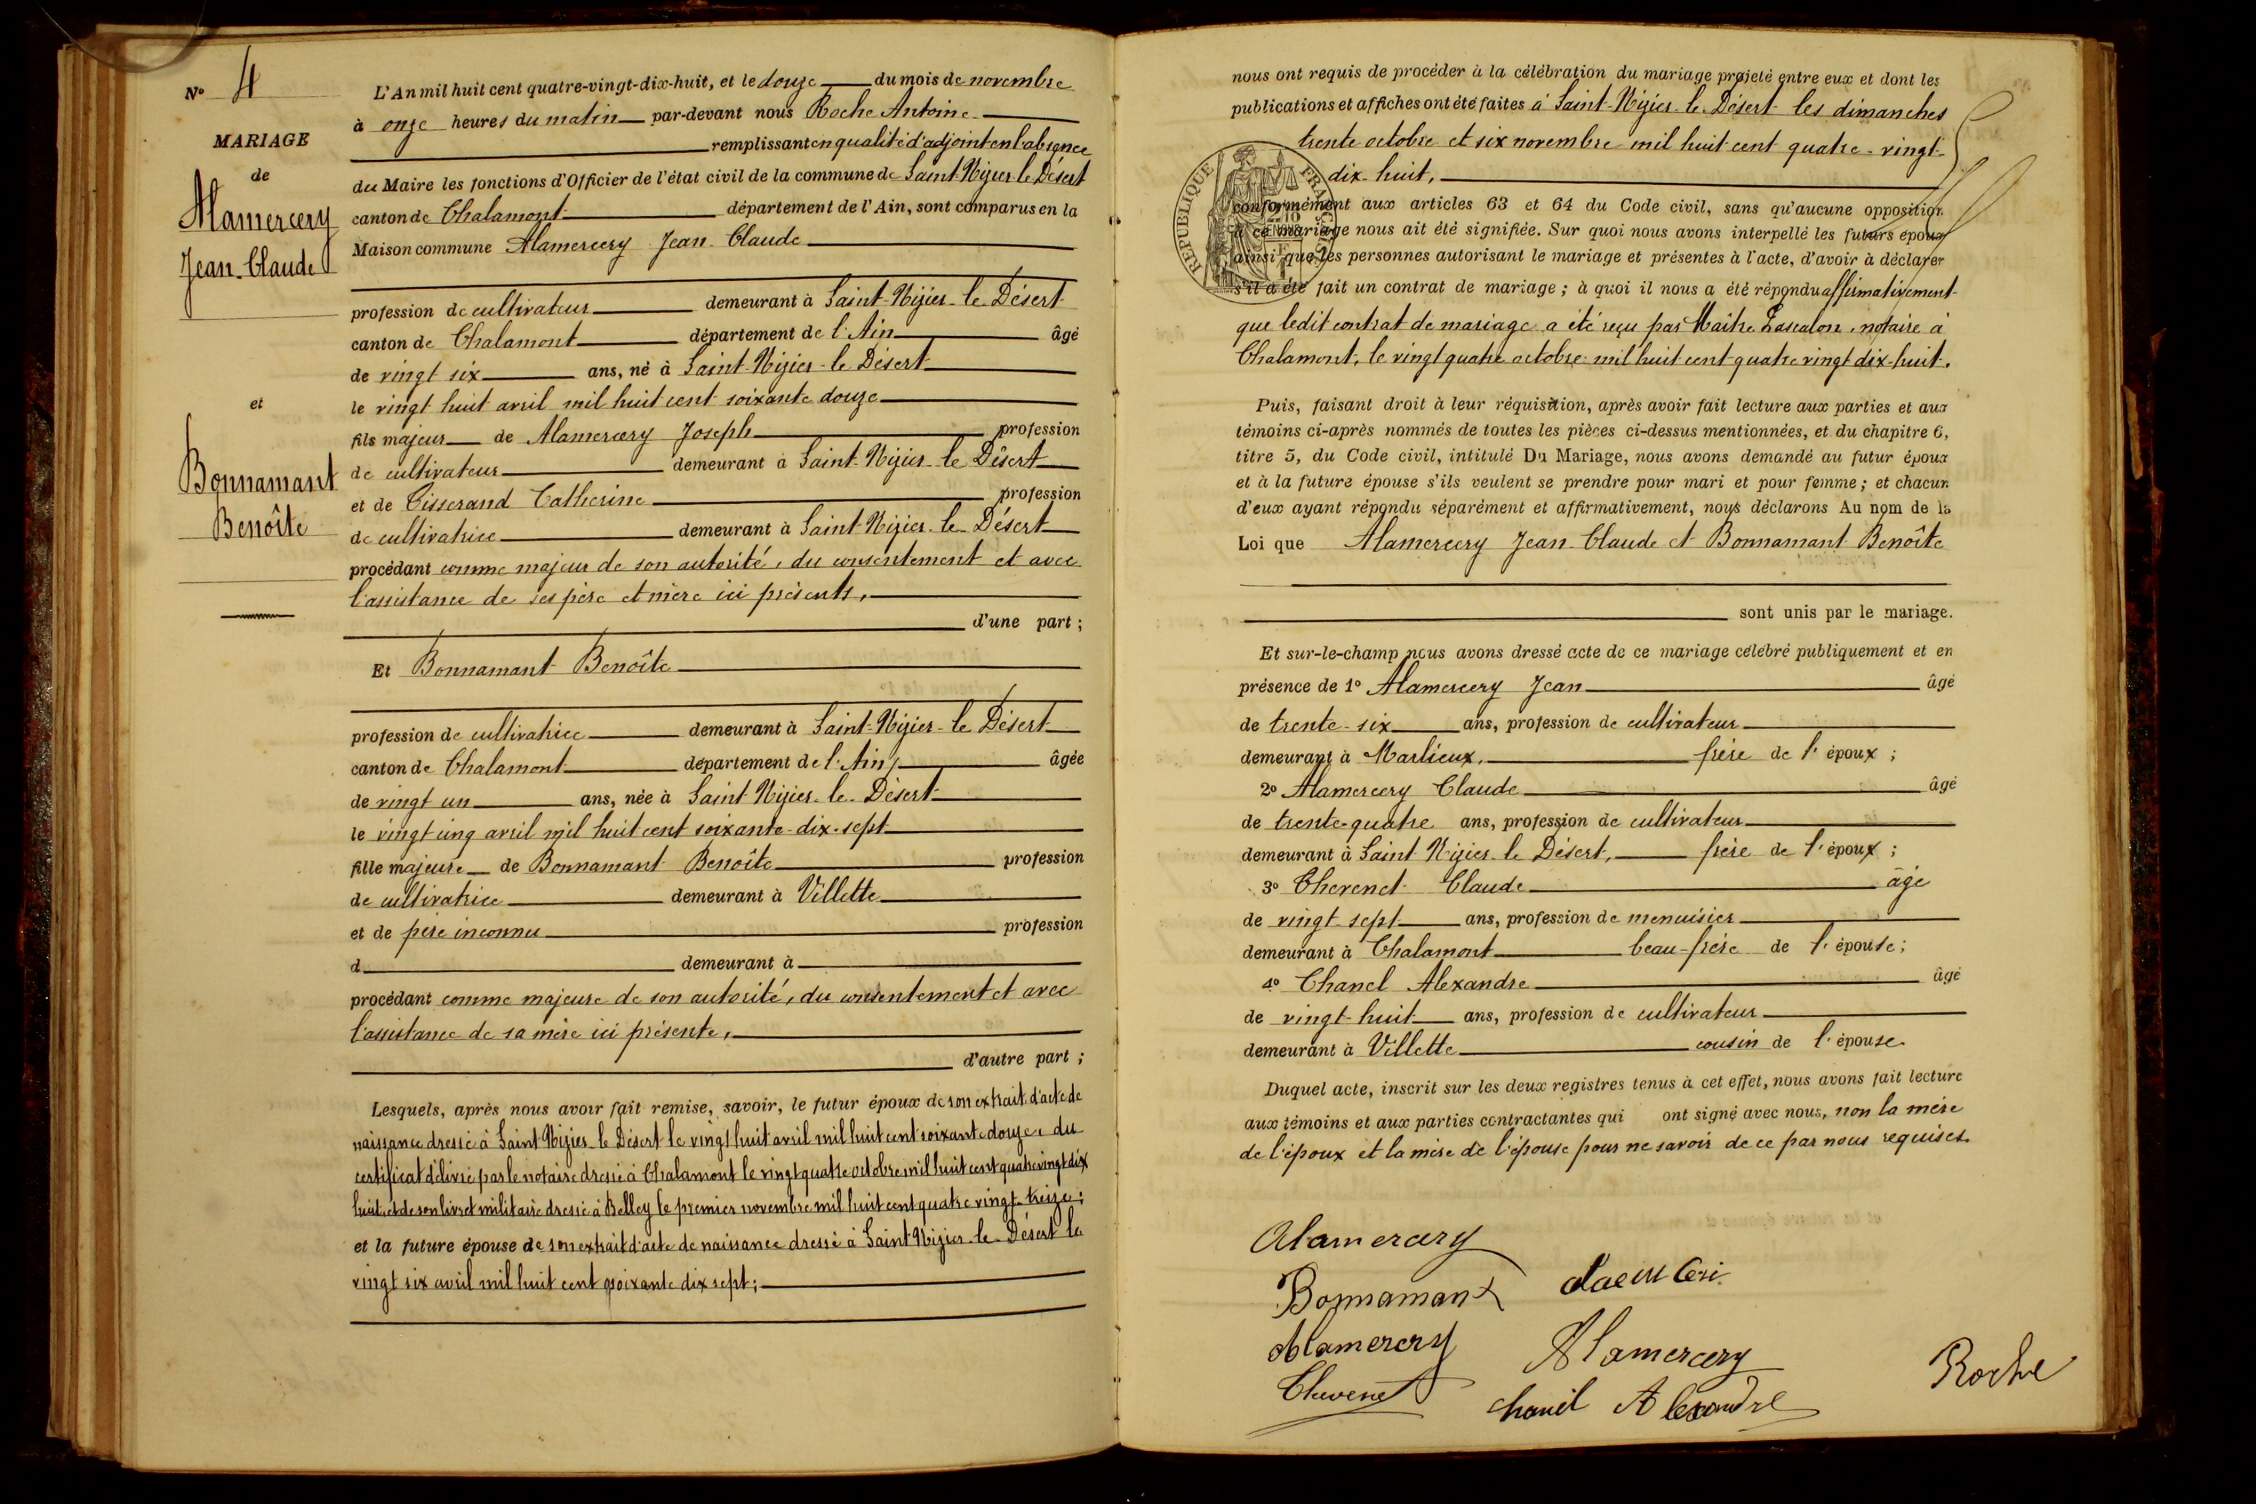 N° 4
MARIAGE
de
Alamercery
Jean-Claude
et
Bonnamant
Benoîte
L'An mil huit cent quatre-vingt-dix-huit, et le douze du mois de novembre
à onze heures du matin par-devant nous Roche Antoine
remplissant en qualité d'adjoint en l'absence
du Maire les fonctions d'Officier de l'état civil de la commune de Saint-Nizier-le-Désert
canton de Chalamont département de l'Ain, sont comparus en la
Maison commune Alamercery Jean-Claude
profession de cultivateur demeurant à Saint-Nizier-le-Désert
canton de Chalamont département de l'Ain âgé
de vingt six ans, né à Saint-Nizier-le-Désert
le vingt huit avril mil huit cent soixante douze
fils majeur de Alamercery Joseph profession
de cultivateur demeurant à Saint-Nizier-le-Désert
et de Tisserand Catherine profession
de cultivatrice demeurant à Saint-Nizier-le-Désert
procédant comme majeur de son autorité, du consentement et avec
l'assistance de ses père et mère ici présents,
d'une part ;
Et Bonnamant Benoîte
profession de cultivatrice demeurant à Saint-Nizier-le-Désert
canton de Chalamont département de l'Ain, âgée
de vingt un ans, née à Saint-Nizier-le-Désert
le vingt cinq avril mil huit cent soixante-dix-sept
fille majeure de Bonnamant Benoîte profession
de cultivatrice demeurant à Villette
et de père inconnu profession
d demeurant à
procédant comme majeure de son autorité, du consentement et avec
l'assistance de sa mère ici présente,
d'autre part ;
Lesquels, après nous avoir fait remise, savoir, le futur époux de son extrait d'acte de
naissance dressé à Saint-Nizier-le-Désert le vingt huit avril mil huit cent soixante douze, du
certificat délivré par le notaire dressé à Chalamont le vingt quatre octobre mil huit cent quatre vingt dix
huit, et de son livret militaire dressé à Belley le premier novembre mil huit cent quatre vingt-treize ;
et la future épouse de son extrait d'acte de naissance dressé à Saint-Nizier-le-Désert le
vingt six avril mil huit cent soixante dix sept ;
nous ont requis de procéder à la célébration du mariage projeté entre eux et dont les
publications et affiches ont été faites à Saint-Nizier-le-Désert les dimanches
trente octobre et six novembre mil huit cent quatre-vingt-
dix-huit,
RÉPUBLIQUE FRANÇAISE
conformément aux articles 63 et 64 du Code civil, sans qu'aucune opposition
à ce mariage nous ait été signifiée. Sur quoi nous avons interpellé les futurs époux
ainsi que les personnes autorisant le mariage et présentes à l'acte, d'avoir à déclarer
s'il a été fait un contrat de mariage ; à quoi il nous a été répondu affirmativement
que ledit contrat de mariage a été reçu par Maître Lascalon, notaire à
Chalamont, le vingt quatre octobre mil huit cent quatre vingt dix-huit.
Puis, faisant droit à leur réquisition, après avoir fait lecture aux parties et aux
témoins ci-après nommés de toutes les pièces ci-dessus mentionnées, et du chapitre 6,
titre 5, du Code civil, intitulé Du Mariage, nous avons demandé au futur époux
et à la future épouse s'ils veulent se prendre pour mari et pour femme ; et chacun
d'eux ayant répondu séparément et affirmativement, nous déclarons Au nom de la
Loi que Alamercery Jean-Claude et Bonnamant Benoîte
sont unis par le mariage.
Et sur-le-champ nous avons dressé acte de ce mariage célébré publiquement et en
présence de 1° Alamercery Jean âgé
de trente-six ans, profession de cultivateur
demeurant à Marlieux, frère de l'époux ;
2° Alamercery Claude âgé
de trente-quatre ans, profession de cultivateur
demeurant à Saint-Nizier-le-Désert, frère de l'époux ;
3° Thevenet Claude âgé
de vingt sept ans, profession de menuisier
demeurant à Chalamont beau-frère de l'épouse ;
4° Chanel Alexandre âgé
de vingt-huit ans, profession de cultivateur
demeurant à Villette cousin de l'épouse
Duquel acte, inscrit sur les deux registres tenus à cet effet, nous avons fait lecture
aux témoins et aux parties contractantes qui ont signé avec nous, non la mère
de l'époux et la mère de l'épouse pour ne savoir de ce par nous requises.
Alamercery
Bonnamant
Alamercery
Alamercery
Thevenet
Chanel Alexandre
Roche